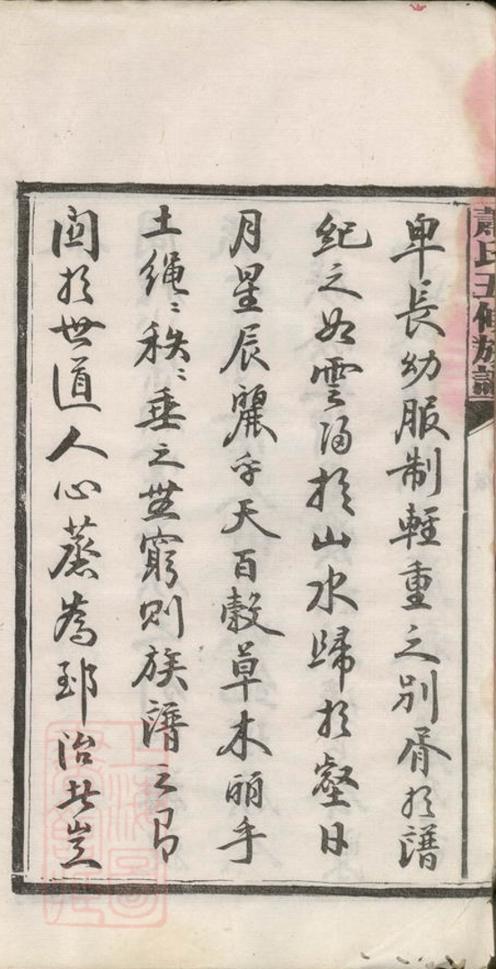 蕭氏五修族譜
卑長幼服制輕重之別胥於譜
紀之如雲於山水歸於壑日
月星辰麗乎天百穀草木麗乎
土繩〻秩〻垂之無窮則族譜之
関於世道人心蒸為郅治者豈
上海圖書館藏